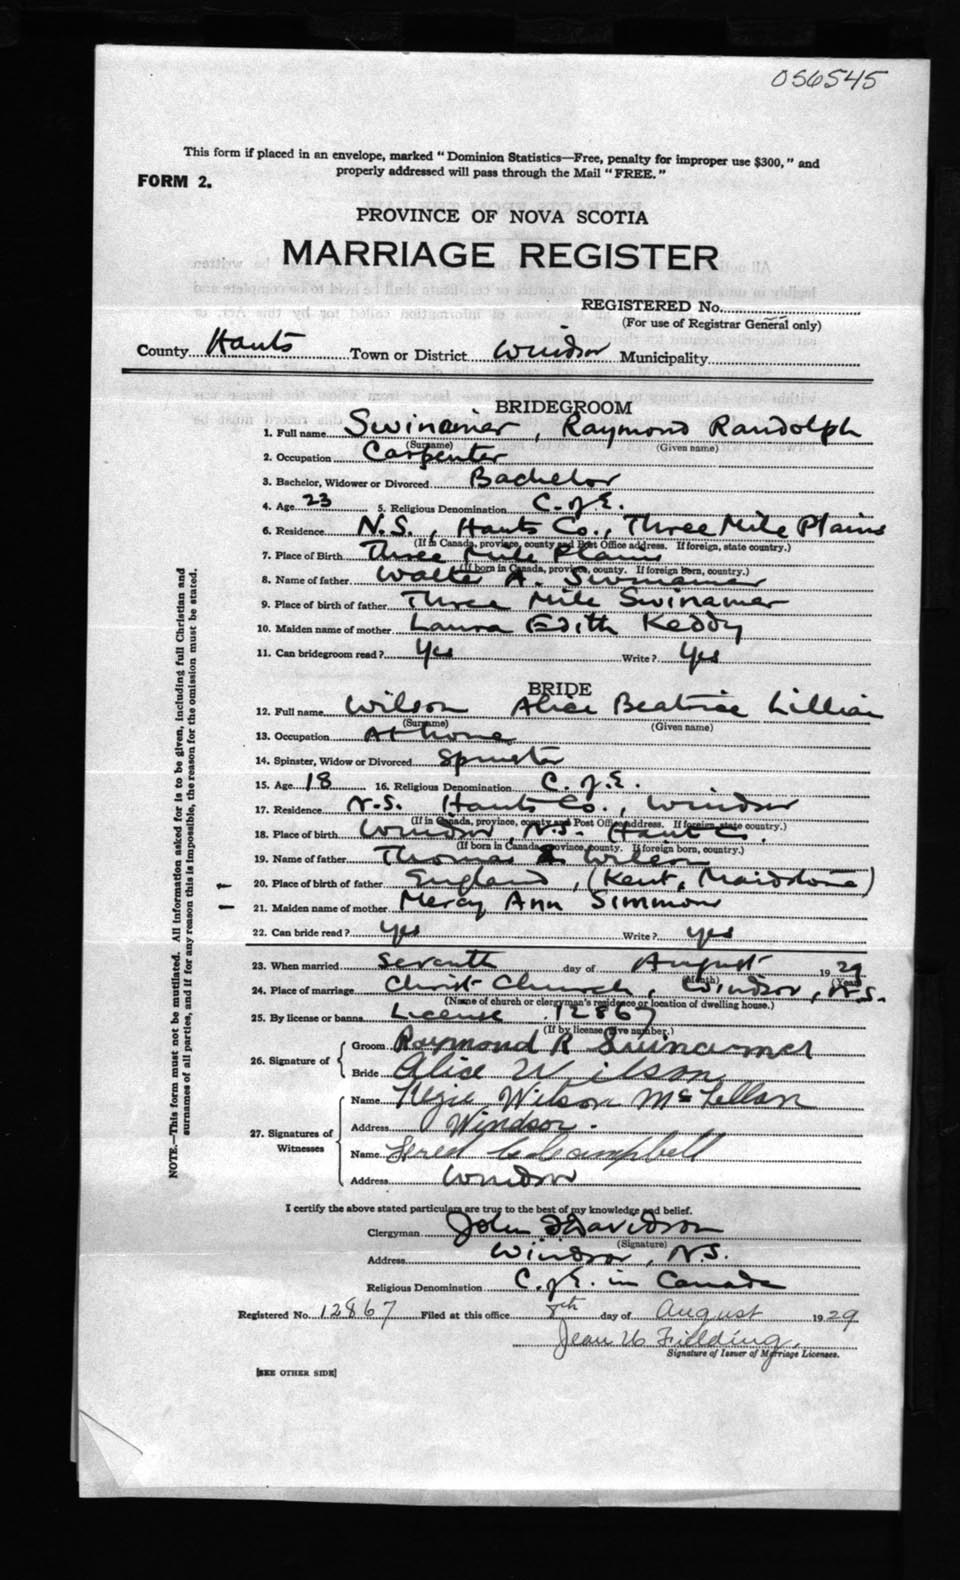 056545
This form if placed in an envelope, marked "Dominion Statistics—Free, penalty for improper use $300," and
properly addressed will pass through the Mail "FREE."
FORM 2.
PROVINCE OF NOVA SCOTIA
MARRIAGE REGISTER
REGISTERED No.
(For use of Registrar General only)
County Hants Town or District Windsor Municipality
BRIDEGROOM
1. Full name Swinamer, Raymond Randolph
(Surname) (Given name)
2. Occupation Carpenter
3. Bachelor, Widower or Divorced Bachelor
4. Age 23 5. Religious Denomination C. of E.
6. Residence N.S., Hants Co., Three Mile Plains
(If in Canada, province, county and Post Office address. If foreign, state country.)
7. Place of Birth Three Mile Plains
(If born in Canada, province, county. If foreign born, country.)
8. Name of father Walter A. Swinamer
9. Place of birth of father Three Mile Swinamer
10. Maiden name of mother Laura Edith Keddy
11. Can bridegroom read? Yes Write? Yes
BRIDE
12. Full name Wilson Alice Beatrice Lillian
(Surname) (Given name)
13. Occupation At home
14. Spinster, Widow or Divorced Spinster
15. Age 18 16. Religious Denomination C. of E.
17. Residence N.S. Hants Co., Windsor
(If in Canada, province, county and Post Office address. If foreign, state country.)
18. Place of birth Windsor, N.S. Hants Co.
(If born in Canada, province, county. If foreign born, country.)
19. Name of father Thomas Wilson
20. Place of birth of father England, (Kent, Maidstone)
21. Maiden name of mother Mercy Ann Simmons
22. Can bride read? Yes Write? Yes
23. When married Seventh day of August 1929
(Month) (Year)
24. Place of marriage Christ Church, Windsor, N.S.
(Name of church or clergyman's residence or location of dwelling house.)
25. By license or banns License 12867
(If by license give number.)
26. Signature of
Groom Raymond R Swinamer
Bride Alice Wilson
27. Signatures of Witnesses
Name Wilson McLellan
Address Windsor.
Name Campbell
Address Windsor
I certify the above stated particulars are true to the best of my knowledge and belief.
Clergyman John Davidson
(Signature)
Address Windsor, N.S.
Religious Denomination C. of E. in Canada
Registered No. 12867 Filed at this office day of August 1929
Jean Fielding,
Signature of Issuer of Marriage Licenses.
[SEE OTHER SIDE]
NOTE.—This form must not be mutilated. All information asked for is to be given, including full Christian and
surnames of all parties, and if for any reason this is impossible, the reason for the omission must be stated.